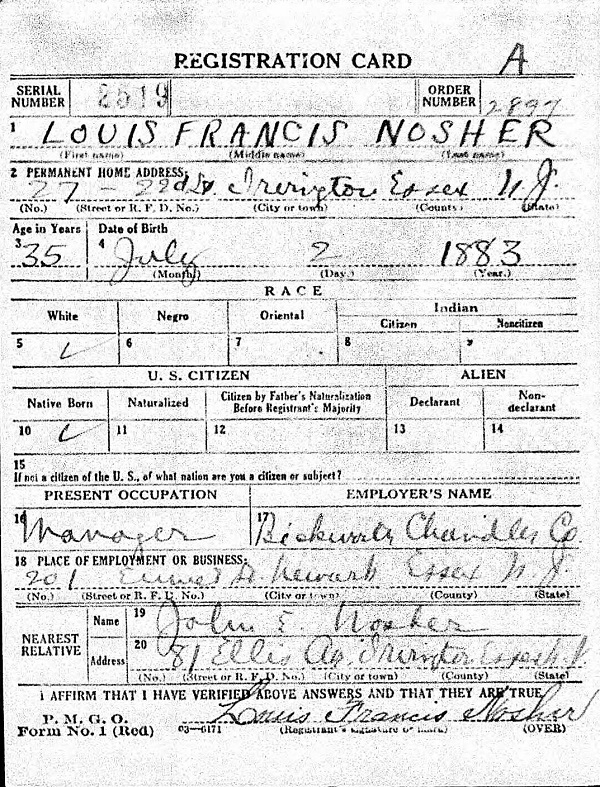 REGISTRATION CARD A
SERIAL NUMBER 2519 ORDER NUMBER 2897
1 LOUIS FRANCIS NOSHER
(First name) (Middle name) (Last name)
2 PERMANENT HOME ADDRESS:
27 - 22d St Irvington Essex N.J.
(No.) (Street or R. F. D. No.) (City or town) (County) (State)
Age in Years Date of Birth
3 35 4 July 2 1883
(Month) (Day.) (Year.)
RACE
White Negro Oriental Indian
Citizen Noncitizen
5 ✓ 6 7 8 9
U. S. CITIZEN ALIEN
Native Born Naturalized Citizen by Father's Naturalization Before Registrant's Majority Declarant Non-declarant
10 ✓ 11 12 13 14
15
If not a citizen of the U. S., of what nation are you a citizen or subject?
PRESENT OCCUPATION EMPLOYER'S NAME
16 Manager 17 Chandler Co.
18 PLACE OF EMPLOYMENT OR BUSINESS:
201 Emmet St Newark Essex N.J.
(No.) (Street or R. F. D. No.) (City or town) (County) (State)
NEAREST RELATIVE
Name 19 John E. Nosher
Address 20 81 Ellis Av. Irvington Essex N.J.
(No.) (Street or R. F. D. No.) (City or town) (County) (State)
I AFFIRM THAT I HAVE VERIFIED ABOVE ANSWERS AND THAT THEY ARE TRUE
P. M. G. O. Louis Francis Nosher
Form No. 1 (Red) 03—6171 (Registrant's signature or mark) (OVER)